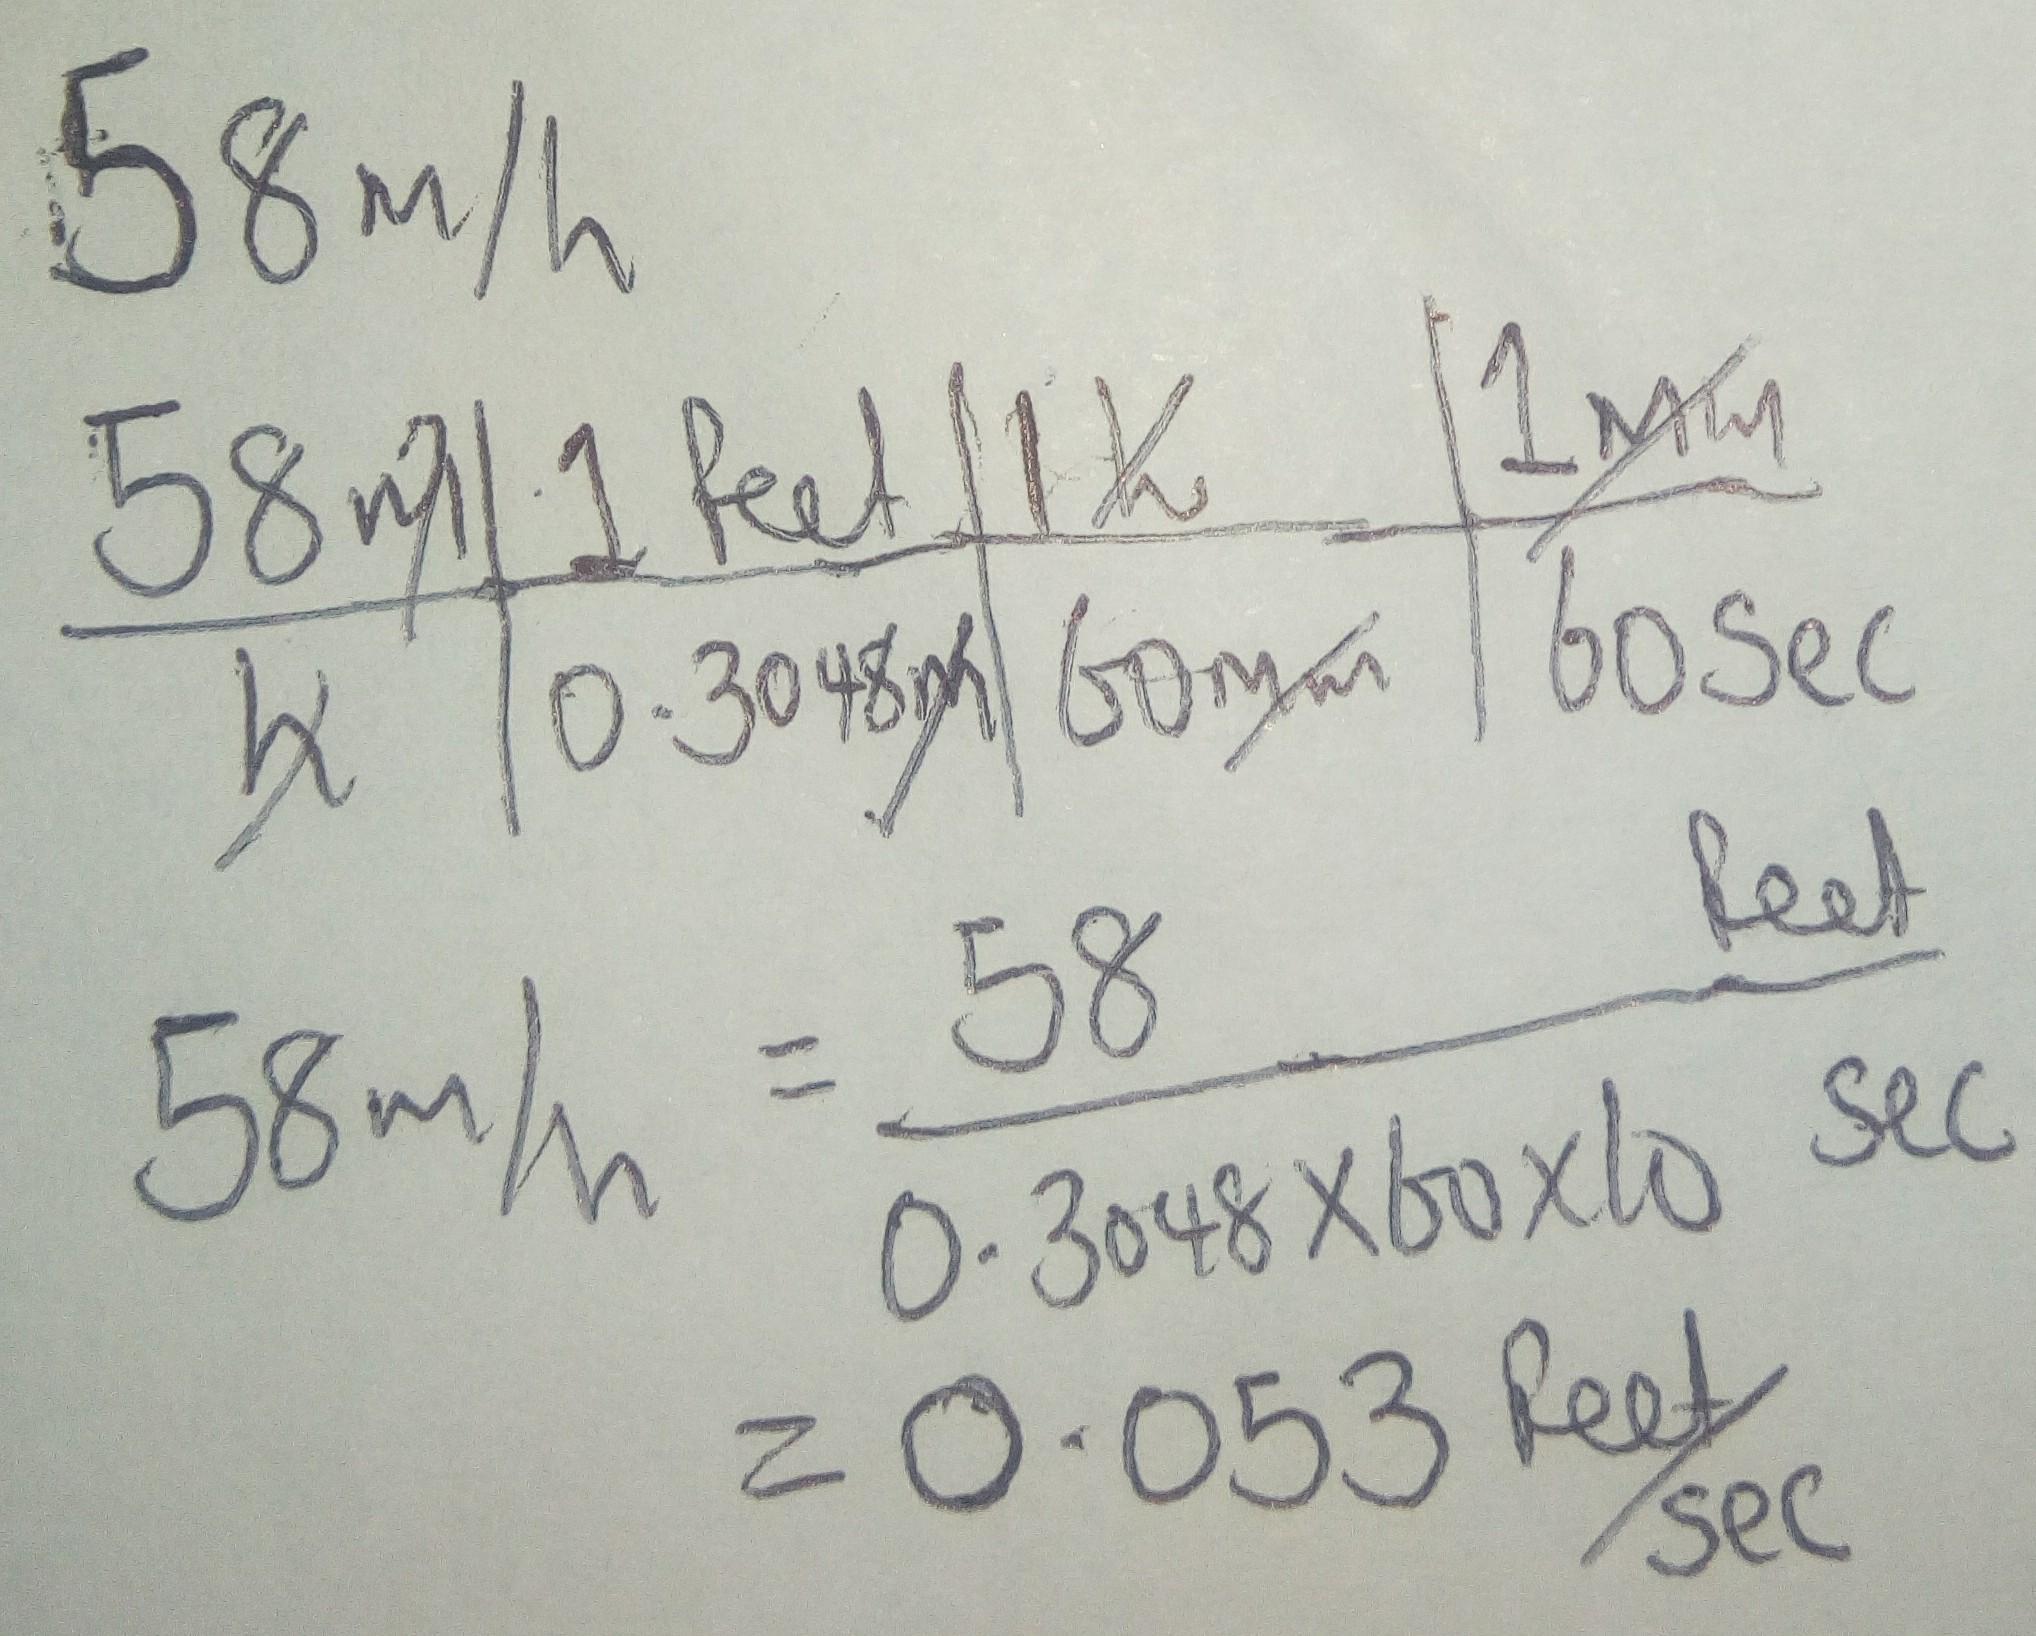 58 m/h
58 m | 1 feet | 1 h | 1 min
h | 0.3048 m | 60 min | 60 sec
58 m/h = 58 feet
0.3048 x 60 x 60 sec
= 0.053 feet/sec